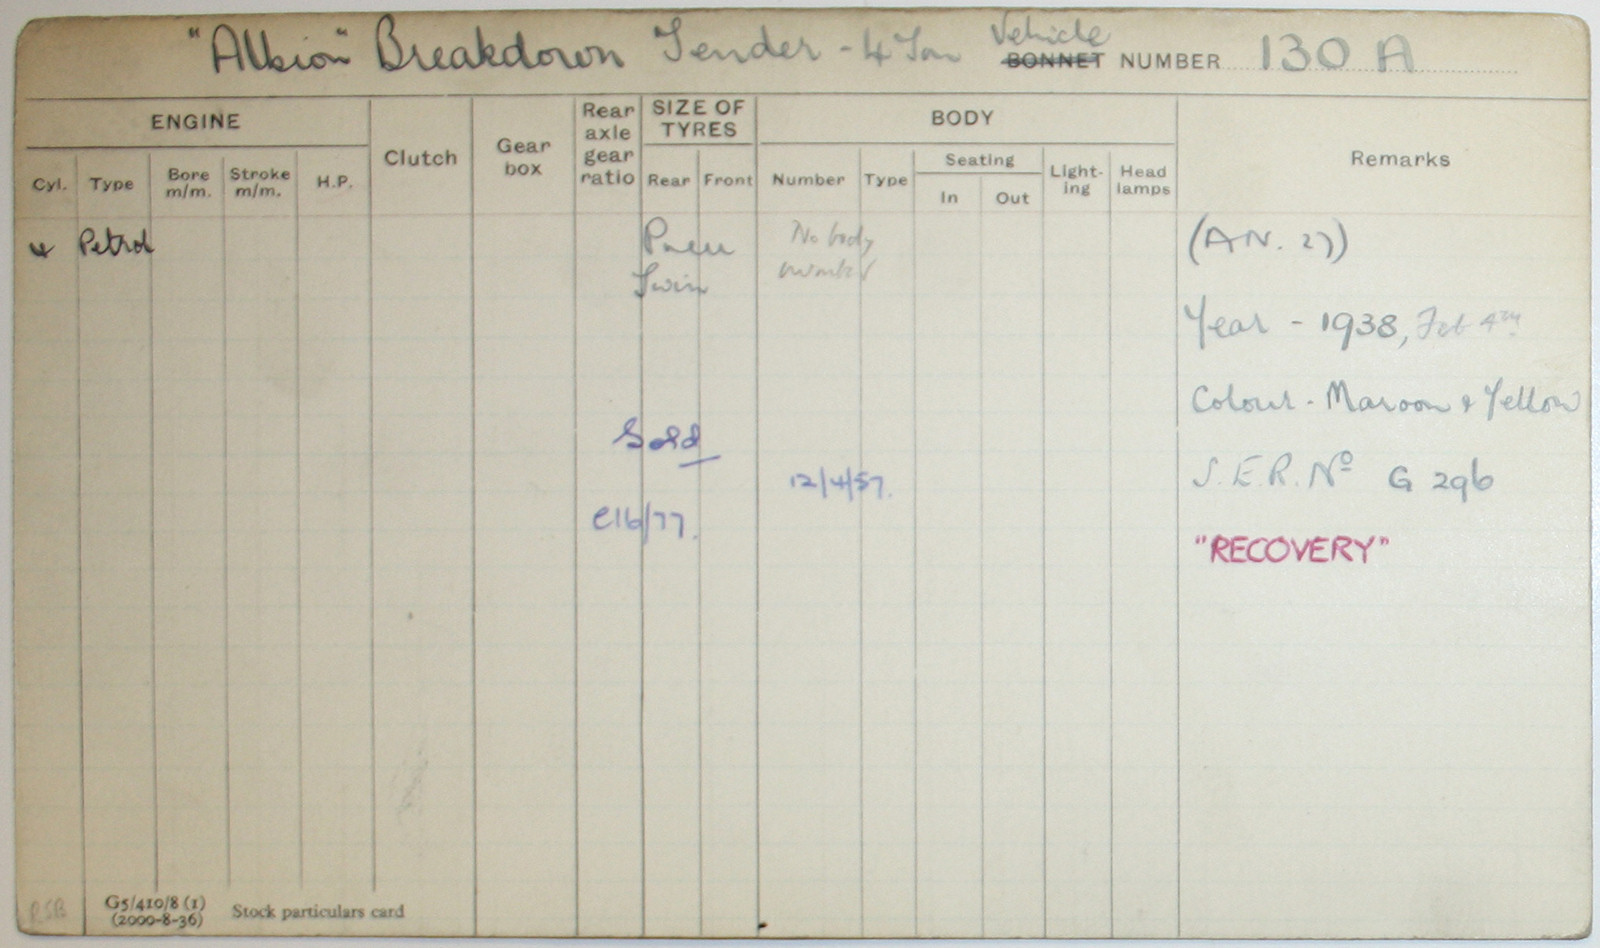 "Albion" Breakdown Tender - 4 Ton Vehicle BONNET NUMBER 130 A
ENGINE
Clutch
Gear box
Rear axle gear ratio
SIZE OF TYRES
BODY
Remarks
Cyl. Type Bore m/m. Stroke m/m. H.P.
Rear Front
Number Type
Seating
In Out
Light-ing
Head lamps
4 Petrol
Pneu
Twin
No body
number
(AN. 27)
Year - 1938, Feb 4TH
Colour - Maroon & Yellow
Sold
12/4/57.
S.E.R. Nº G 296
C16/77.
"RECOVERY"
RSB
G5/410/8 (1)
(2000-8-36)
Stock particulars card